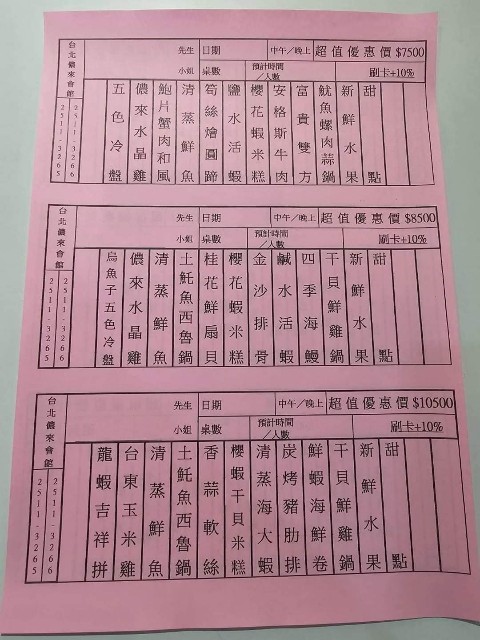 台北儂來會館
2511-3265
2511-3266
先生
小姐
日期
桌數
中午/晚上
預計時間
/人數
超值優惠價$7500
刷卡+10%
五色冷盤
儂來水晶雞
鮑片蟹肉和風
清蒸鮮魚
筍絲燴圓蹄
鹽水活蝦
櫻花蝦米糕
安格斯牛肉
富貴雙方
魷魚螺肉蒜鍋
新鮮水果
甜點
台北儂來會館
2511-3265
2511-3266
先生
小姐
日期
桌數
中午/晚上
預計時間
/人數
超值優惠價$8500
刷卡+10%
烏魚子五色冷盤
儂來水晶雞
清蒸鮮魚
土魠魚西魯鍋
桂花鮮扇貝
櫻花蝦米糕
金沙排骨
鹹水活蝦
四季海鰻
干貝鮮雞鍋
新鮮水果
甜點
台北儂來會館
2511-3265
2511-3266
先生
小姐
日期
桌數
中午/晚上
預計時間
/人數
超值優惠價$10500
刷卡+10%
龍蝦吉祥拼
台東玉米雞
清蒸鮮魚
土魠魚西魯鍋
香蒜軟絲
櫻蝦干貝米糕
清蒸海大蝦
炭烤豬肋排
鮮蝦海鮮卷
干貝鮮雞鍋
新鮮水果
甜點